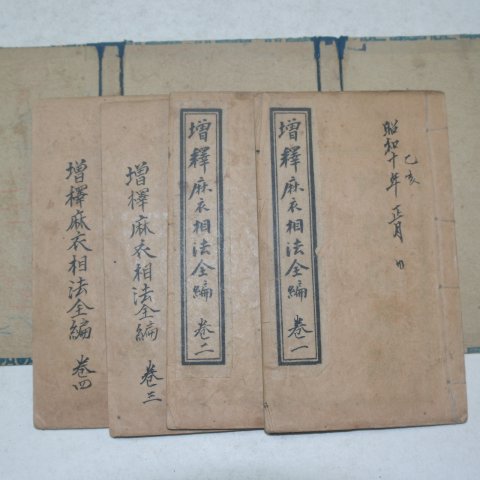 昭和十年 正月
乙亥
增釋麻衣相法全編 卷一
增釋麻衣相法全編 卷二
增釋麻衣相法全編 卷三
增釋麻衣相法全編 卷四